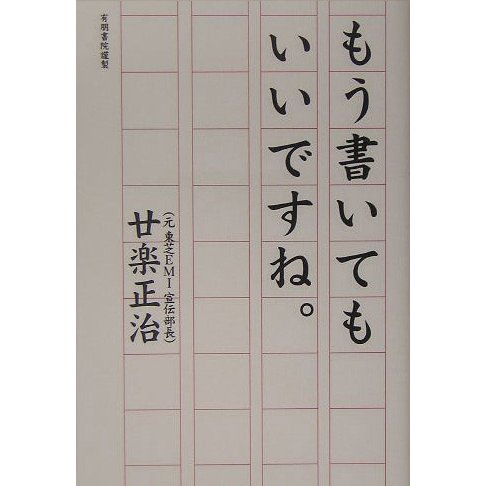 もう書いても
いいですね。
（元 東芝EMI 宣伝部長）
廿楽正治
有朋書院謹製